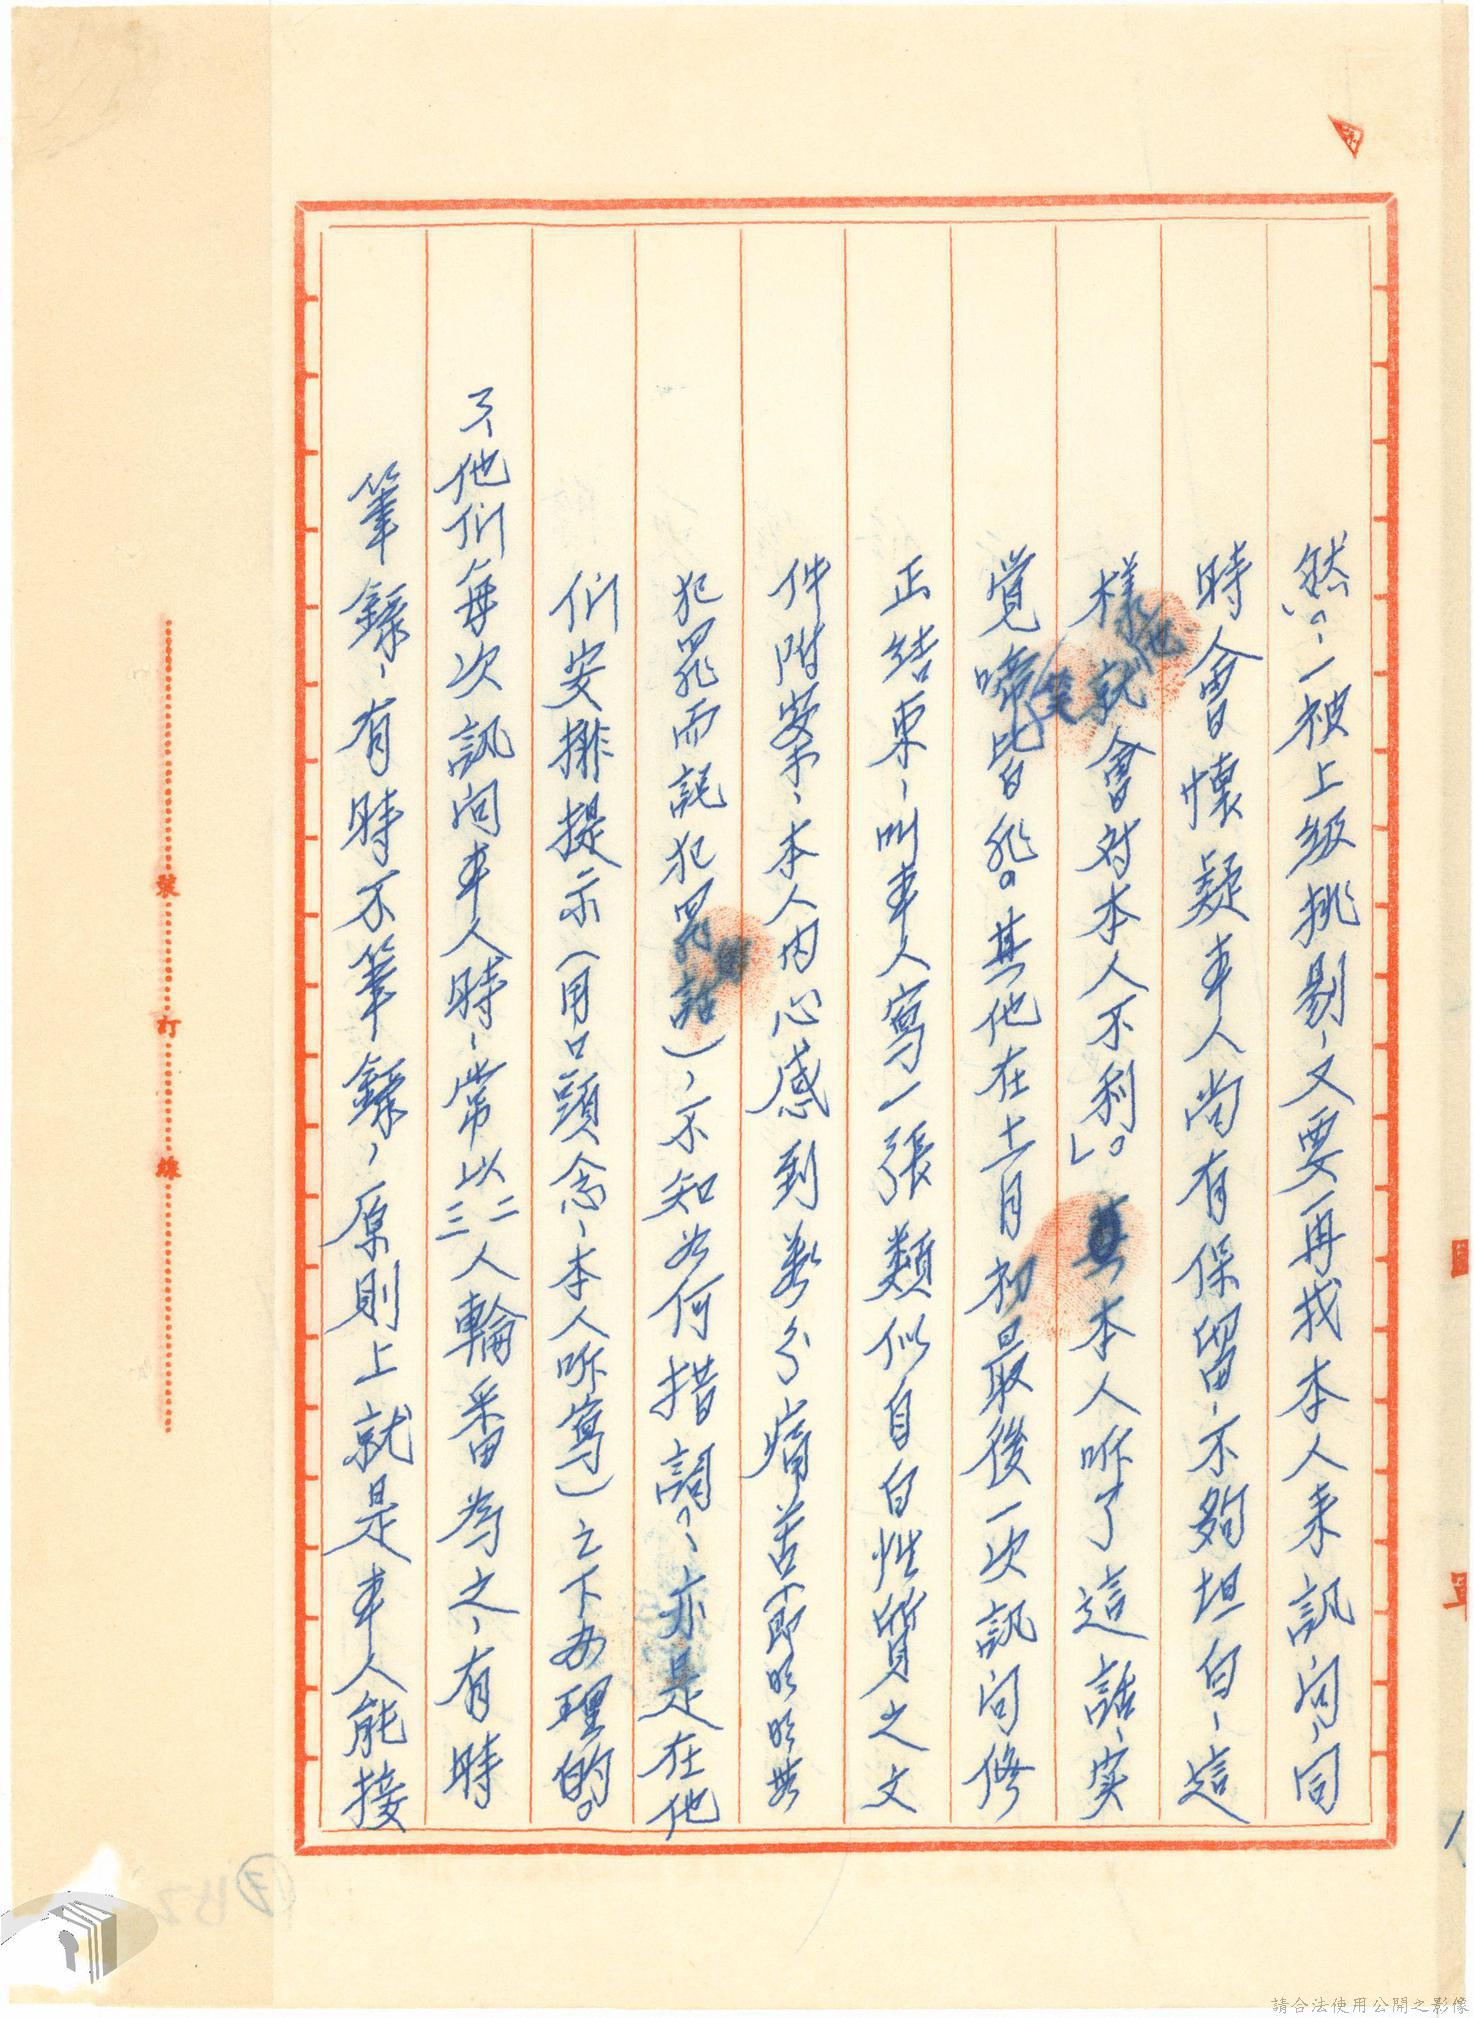 然，一被上級挑剔，又要再找本人來訊问，同
時會懷疑本人尚有保留，不夠坦白，這
樣他就會对本人不利」。本人听了這話，实
覺啼笑皆非。其他在十一月初最後一次訊问修
正結束，叫本人寫一張類似自白性質之文
件附案，本人内心感到萬分痛苦(即明明無
犯罪而說犯罪話)，不知如何措詞，亦是在他
们安排提示(用口頭念，本人听寫)之下办理的。
了，他们每次訊问本人時，常以二三人輪番為之，有時
筆錄，有時不筆錄，原則上就是本人能接
裝
訂
線
請合法使用公開之影像